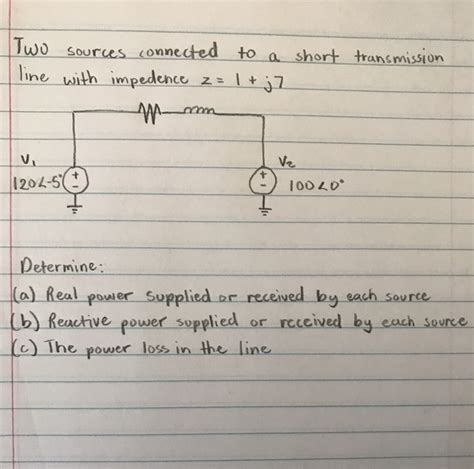 Two sources connected to a short transmission
line with impedence z = 1 + j7
V₁
120∠-5°
+
-
V₂
+
-
100∠0°
Determine:
(a) Real power supplied or received by each source
(b) Reactive power supplied or received by each source
(c) The power loss in the line